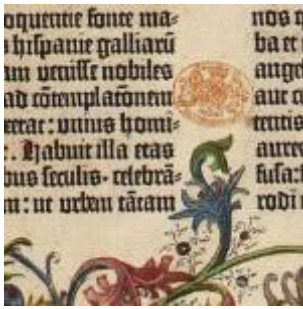 oquentie fonte ma=
s hispanie galliarū
am venisse nobiles
ad cōtemplatōnem
erat: unius homi=
. Habuit illa etas
bus seculis· celebrā=
m: ut urbem tātam
nos q
ba et
ange
aut c
tentis
auree
fusa:
rodi